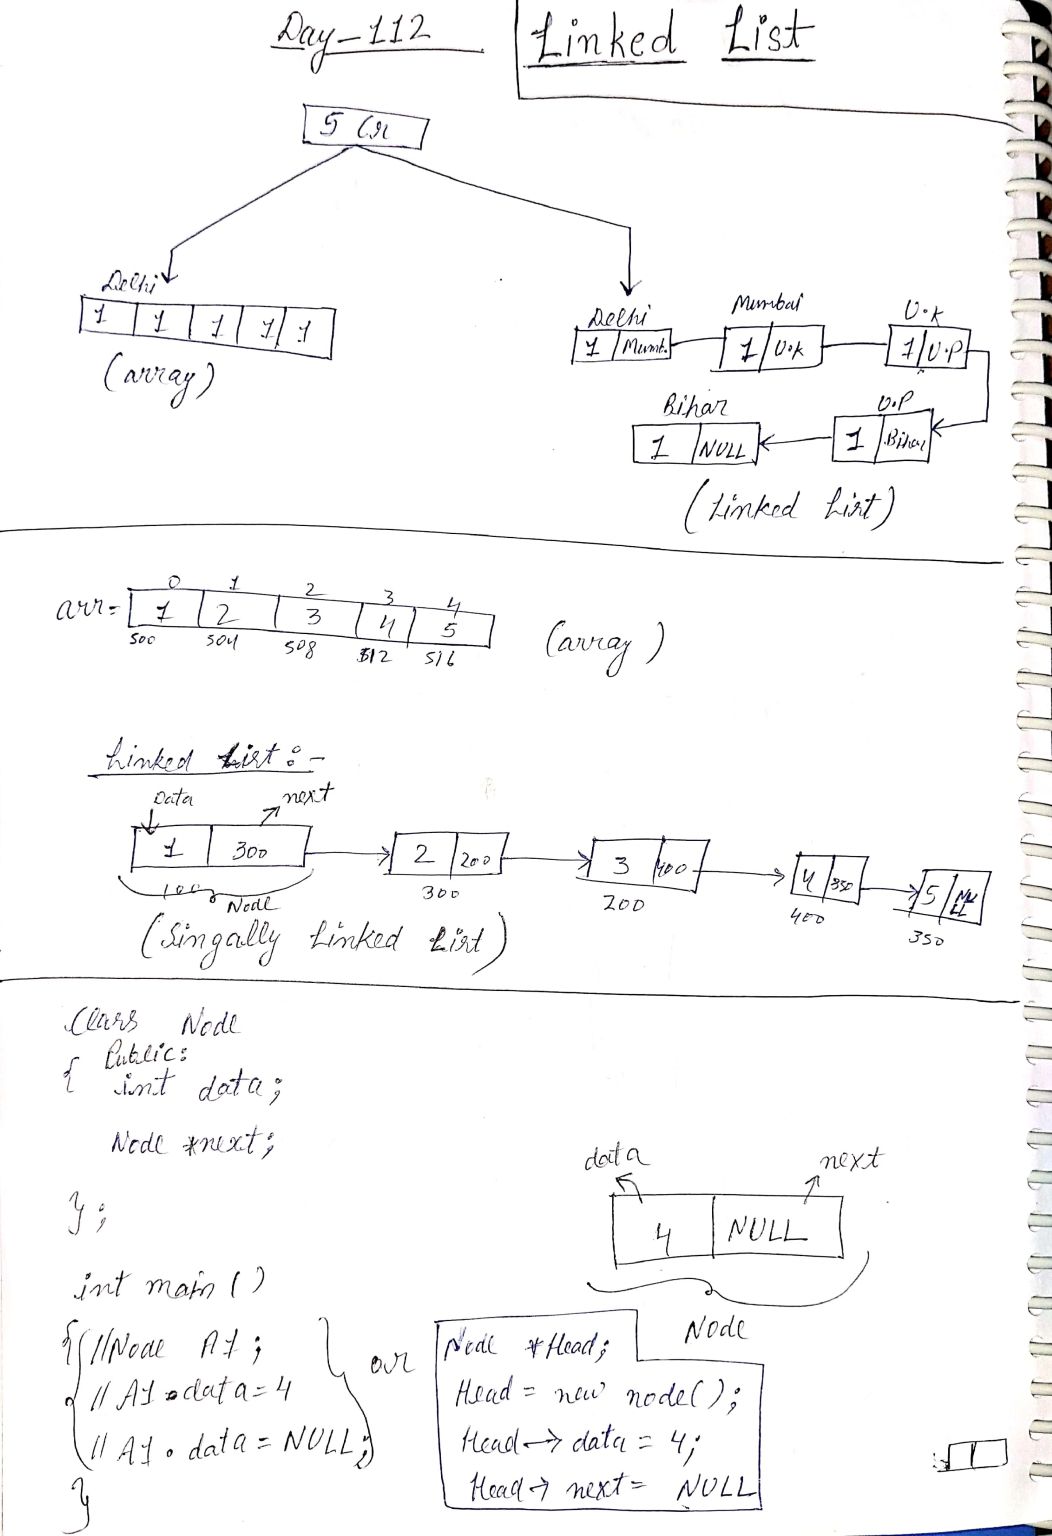 Day-112
Linked List
5 Cr
Delhi
1 1 1 1 1
(array)
Delhi Mumbai U.K
1 Mumb. 1 U.K 1 U.P
Bihar U.P
1 NULL 1 Bihar
(Linked List)
0 1 2 3 4
arr= 1 2 3 4 5
500 504 508 512 516
(array)
Linked List:-
Data next
1 300 2 200 3 400 4 350 5 NULL
100 300 200 400 350
Node
(Singally Linked List)
Class Node
{ Public:
int data;
Node *next;
};
data next
4 NULL
Node
int main()
{ //Node A1;
// A1.data=4
// A1.data = NULL;
}
or
Node *Head;
Head = new node();
Head→data = 4;
Head→next= NULL